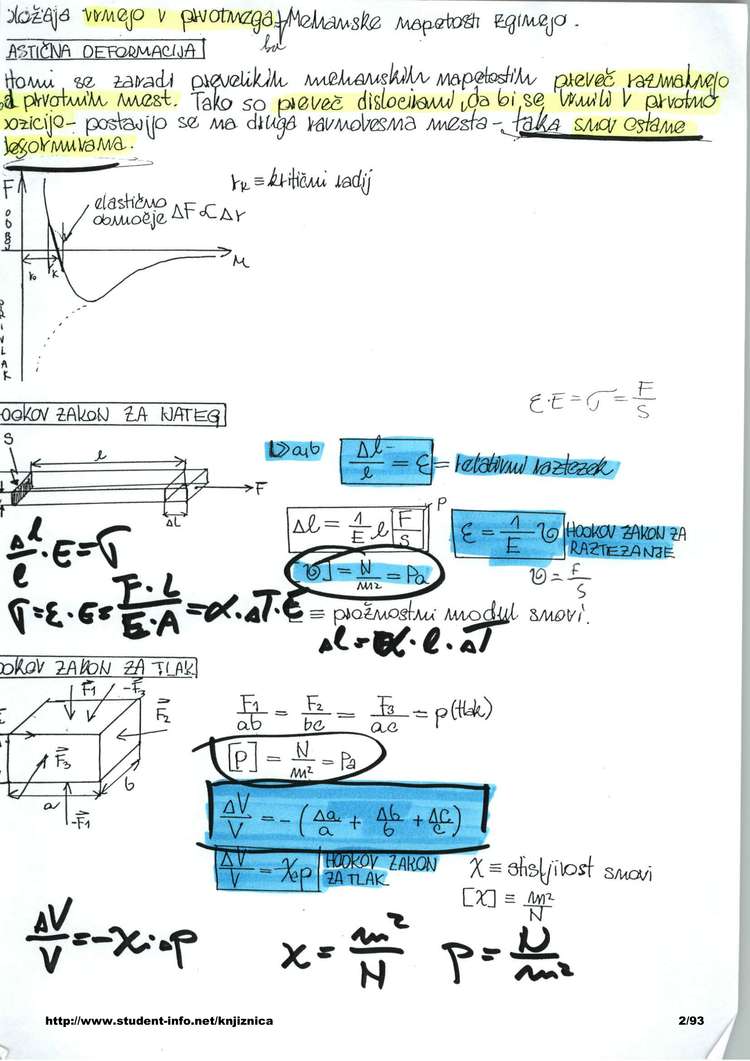 vrnejo v prvotnega + Mehanske napetosti zginejo.
ASTIČNA DEFORMACIJA
tomi se zaradi prevelikih mehanskih napetostih preveč razmaknejo
d prvotnih mest. Tako so preveč dislocirani, da bi se vrnili v prvotno
pozicijo - postavijo se na druga ravnovesna mesta - taka snov ostane
deformirana.
r_k ≡ kritični radij
elastično
območje ΔF ∝ Δr
F
ODBOJ
PRIVLAK
r₀ r_k
ε·E = σ = F/S
HOOKOV ZAKON ZA NATEG
S
l
F
ΔL
a,b
Δl/l = ε = relativni raztezek
Δl = 1/E l F/S
P
ε = 1/E σ HOOKOV ZAKON ZA
RAZTEZANJE
Δl/l · E = σ
[σ] = N/m² = Pa
σ = F/S
σ = ε·E = F·L/E·A = α·ΔT·E
E ≡ prožnostni modul snovi.
Δl = α·l·ΔT
HOOKOV ZAKON ZA TLAK
F₁ -F₃
F₂
F₃
a
b
-F₁
F₁/ab = F₂/bc = F₃/ac = p (tlak)
[P] = N/m² = Pa
ΔV/V = -(Δa/a + Δb/b + Δc/c)
ΔV/V = χp HOOKOV ZAKON
ZA TLAK
χ ≡ stisljivost snovi
[χ] ≡ m²/N
ΔV/V = -χ·Δp
χ = m²/N
p = N/m²
http://www.student-info.net/knjiznica
2/93